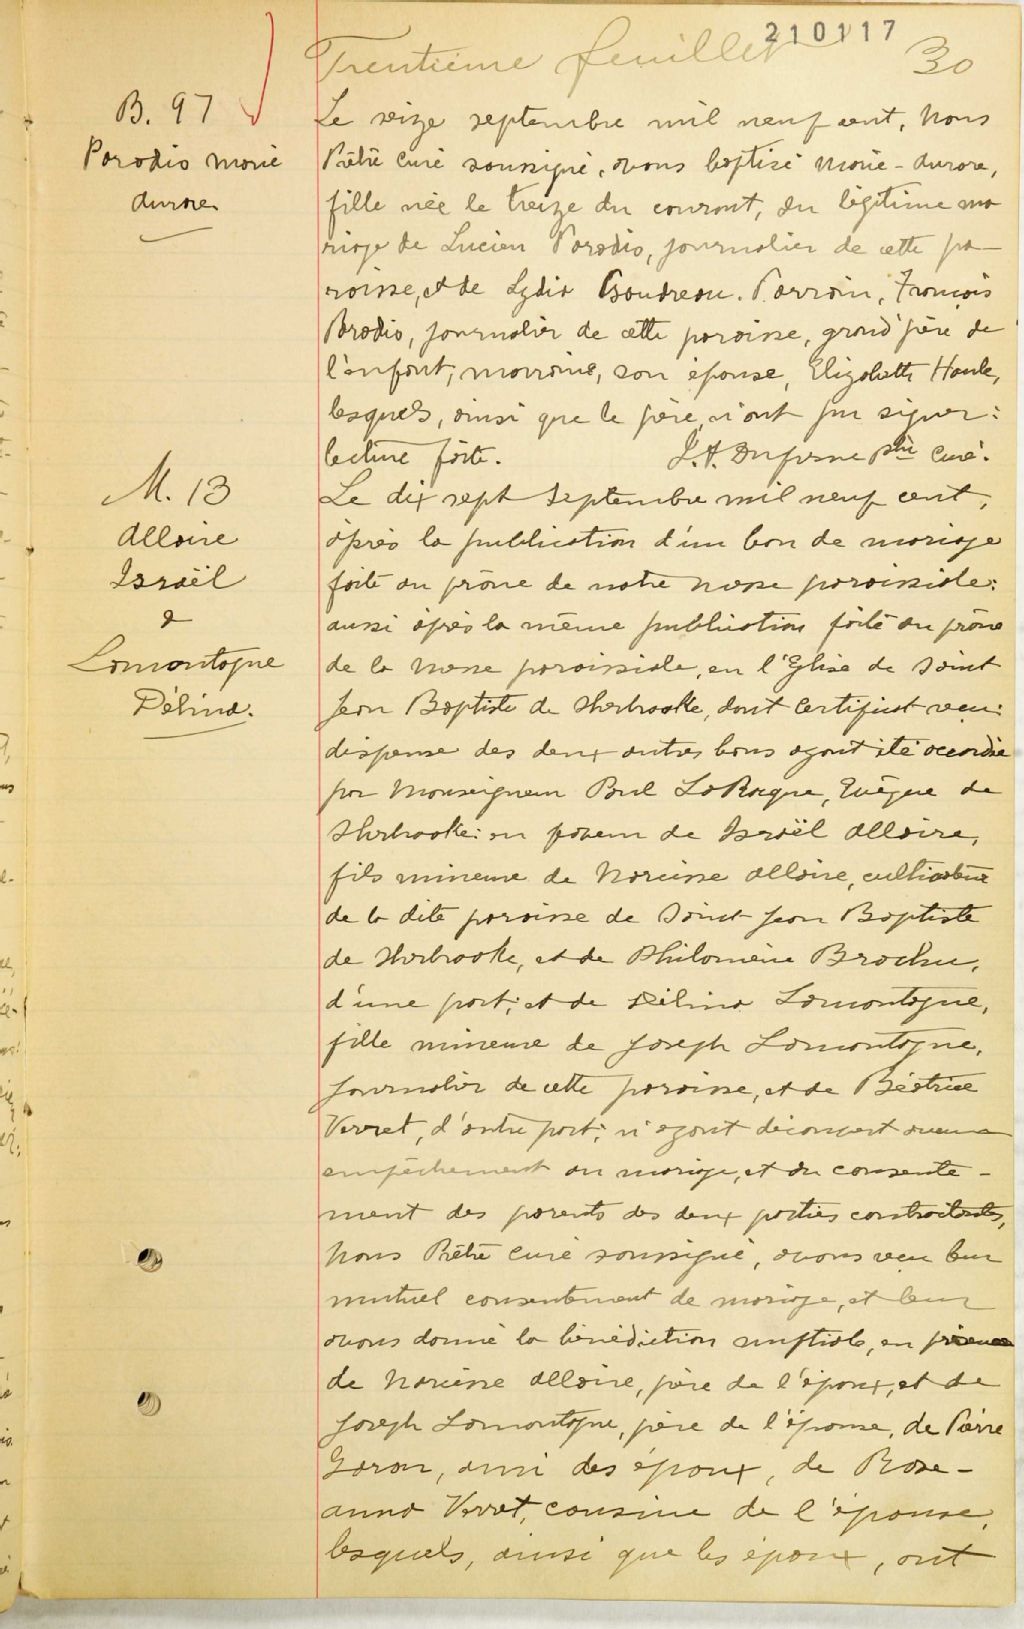 210117
Trentième feuillet 30
B. 97
Paradis Marie
Aurore
Le seize septembre mil neuf cent, Nous
Prêtre Curé soussigné, avons baptisé Marie-Aurore,
fille née le treize du courant, du légitime ma
riage de Lucien Paradis, journalier de cette pa-
roisse, et de Lydia Boudreau. Parrain, François
Paradis, journalier de cette paroisse, grand'père de
l'enfant, marraine, son épouse, Elizabeth Houle,
lesquels, ainsi que le père, n'ont pu signer:
lecture faite. J.A. Dufresne ptre Curé.
M. 13
Allaire
Israël
&
Lamontagne
Délina.
Le dix sept Septembre mil neuf cent,
après la publication d'un ban de mariage
faite au prône de notre messe paroissiale:
aussi après la même publication faite au prône
de la messe paroissiale, en l'Eglise de Saint
Jean Baptiste de Sherbrooke, dont Certificat veu:
dispense des deux autres bans ayant été accordée
par Monseigneur Paul LaRocque, Evêque de
Sherbrooke: en faveur de Israël Allaire,
fils mineure de Narcisse Allaire, cultivateur
de la dite paroisse de Saint Jean Baptiste
de Sherbrooke, et de Philomène Brochu,
d'une part; et de Délina Lamontagne,
fille mineure de Joseph Lamontagne,
Journalier de cette paroisse, et de Béatrice
Verret, d'autre part; n'ayant découvert aucun
empêchement au mariage, et du consente-
ment des parents des deux parties contractantes,
Nous Prêtre Curé soussigné, avons veu leur
mutuel consentement de mariage, et leur
avons donné la bénédiction nuptiale, en présence
de Narcisse Allaire, père de l'époux, et de
Joseph Lamontagne, père de l'épouse, de Pierre
Garon, ami des époux, de Rose-
anna Verret, cousine de l'épouse,
lesquels, ainsi que les époux, ont